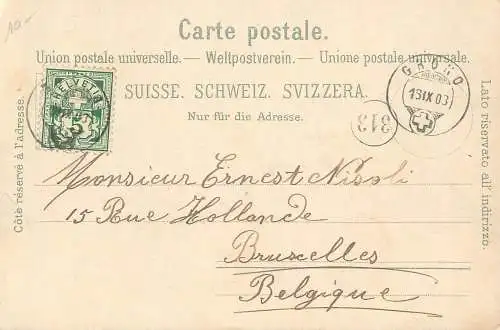 10.-
Carte postale.
Union postale universelle. — Weltpostverein. — Unione postale universale.
SUISSE. SCHWEIZ. SVIZZERA.
Nur für die Adresse.
Côté réservé à l'adresse.
Lato riservato all' indirizzo.
HELVETIA
5
GRONO
13 IX 03
313
Monsieur Ernest Nisoli
15 Rue Hollande
Bruxelles
Belgique